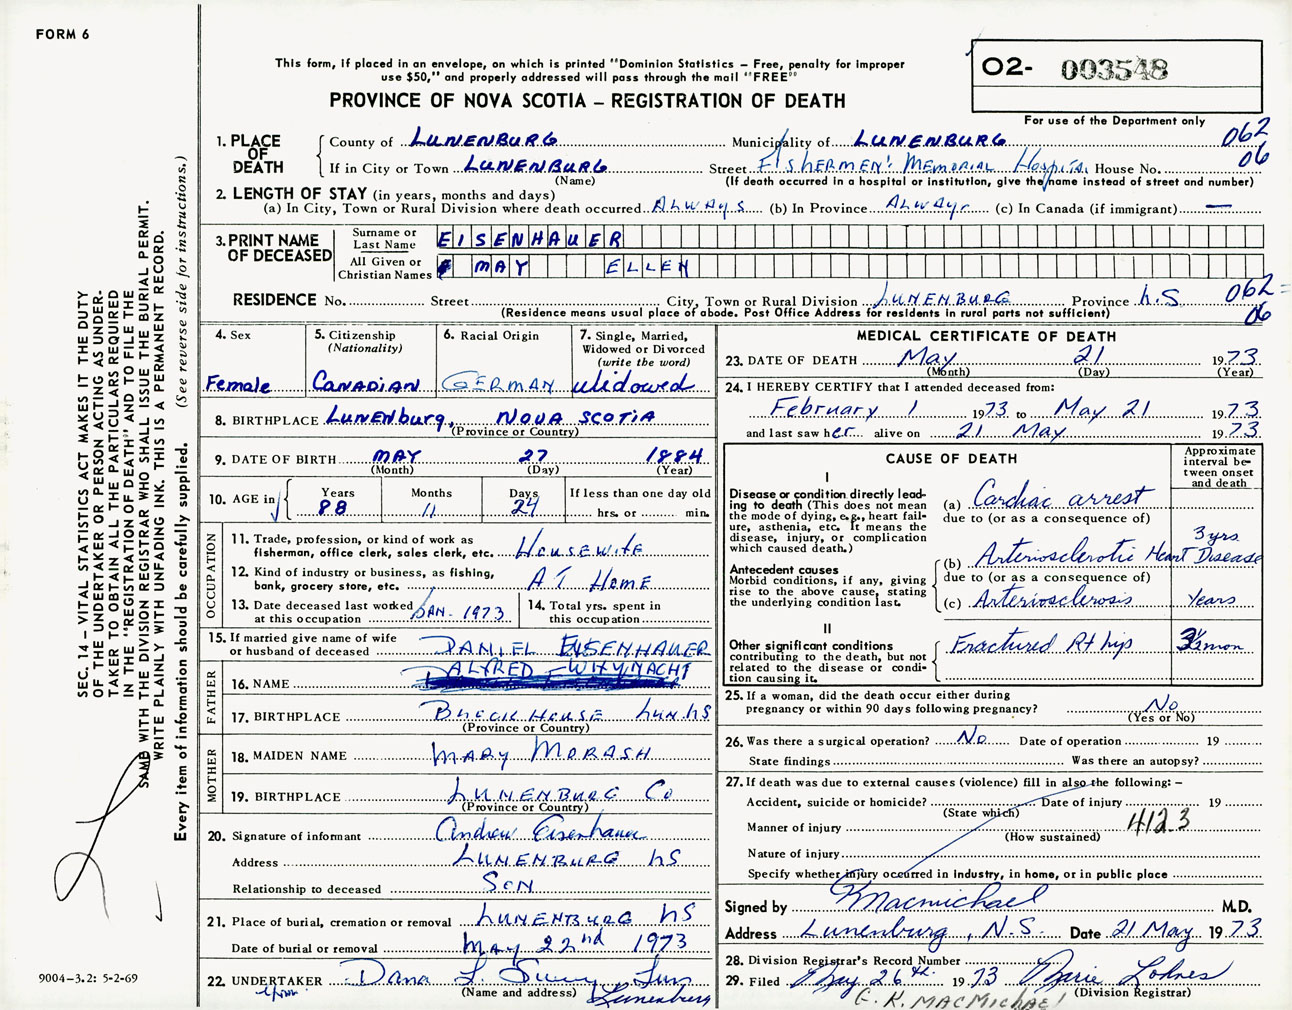 FORM 6
This form, if placed in an envelope, on which is printed "Dominion Statistics – Free, penalty for improper
use $50," and properly addressed will pass through the mail "FREE"
PROVINCE OF NOVA SCOTIA – REGISTRATION OF DEATH
O2- 003548
For use of the Department only
1. PLACE OF DEATH County of LUNENBURG Municipality of LUNENBURG 062
If in City or Town LUNENBURG Street FISHERMEN'S MEMORIAL Hospital House No. 06
(Name) (If death occurred in a hospital or institution, give the name instead of street and number)
2. LENGTH OF STAY (in years, months and days)
(a) In City, Town or Rural Division where death occurred ALWAYS (b) In Province ALWAYS (c) In Canada (if immigrant) —
3. PRINT NAME OF DECEASED Surname or Last Name EISENHAUER
All Given or Christian Names MAY ELLEN
RESIDENCE No. Street City, Town or Rural Division LUNENBURG Province N.S 062
(Residence means usual place of abode. Post Office Address for residents in rural parts not sufficient) 06
4. Sex Female
5. Citizenship (Nationality) CANADIAN
6. Racial Origin GERMAN
7. Single, Married, Widowed or Divorced (write the word) Widowed
8. BIRTHPLACE LUNENburg, NOVA SCOTIA
(Province or Country)
9. DATE OF BIRTH MAY 27 1884
(Month) (Day) (Year)
10. AGE in Years 88 Months 11 Days 24 If less than one day old hrs. or min.
OCCUPATION
11. Trade, profession, or kind of work as fisherman, office clerk, sales clerk, etc. HOUSEWIFE
12. Kind of industry or business, as fishing, bank, grocery store, etc. AT HOME
13. Date deceased last worked at this occupation JAN. 1973
14. Total yrs. spent in this occupation
15. If married give name of wife or husband of deceased DANIEL EISENHAUER
FATHER
16. NAME ALFRED WHYNACHT
17. BIRTHPLACE BLOCK HOUSE LUN. NS
(Province or Country)
MOTHER
18. MAIDEN NAME MARY MORASH
19. BIRTHPLACE LUNENBURG Co
(Province or Country)
20. Signature of informant Andrew Eisenhauer
Address LUNENBURG NS
Relationship to deceased SON
21. Place of burial, cremation or removal LUNENBURG NS
Date of burial or removal MAY 22nd 1973
22. UNDERTAKER Dana L. Sweeny Lunenburg
(Name and address)
MEDICAL CERTIFICATE OF DEATH
23. DATE OF DEATH May 21 1973
(Month) (Day) (Year)
24. I HEREBY CERTIFY that I attended deceased from:
February 1 1973 to May 21 1973
and last saw her alive on 21 May 1973
CAUSE OF DEATH
Approximate interval between onset and death
I
Disease or condition directly leading to death (This does not mean the mode of dying, e.g., heart failure, asthenia, etc. It means the disease, injury, or complication which caused death.)
(a) Cardiac arrest
due to (or as a consequence of)
Antecedent causes
Morbid conditions, if any, giving rise to the above cause, stating the underlying condition last.
(b) Arteriosclerotic Heart Disease 3 yrs
due to (or as a consequence of)
(c) Arteriosclerosis Years
II
Other significant conditions contributing to the death, but not related to the disease or condition causing it.
Fractured Rt hip mon
25. If a woman, did the death occur either during pregnancy or within 90 days following pregnancy? No
(Yes or No)
26. Was there a surgical operation? No Date of operation 19
State findings Was there an autopsy?
27. If death was due to external causes (violence) fill in also the following: –
Accident, suicide or homicide? Date of injury 19
(State which)
Manner of injury 4123
(How sustained)
Nature of injury
Specify whether injury occurred in industry, in home, or in public place
Signed by K Macmichael M.D.
Address Lunenburg, N.S. Date 21 May 1973
28. Division Registrar's Record Number
29. Filed May 26th. 1973 Marie Lohnes
(Division Registrar)
E. K. MACMICHAEL
SEC. 14 – VITAL STATISTICS ACT MAKES IT THE DUTY
OF THE UNDERTAKER OR PERSON ACTING AS UNDER-
TAKER TO OBTAIN ALL THE PARTICULARS REQUIRED
IN THE "REGISTRATION OF DEATH" AND TO FILE THE
SAME WITH THE DIVISION REGISTRAR WHO SHALL ISSUE THE BURIAL PERMIT.
WRITE PLAINLY WITH UNFADING INK. THIS IS A PERMANENT RECORD.
Every item of information should be carefully supplied. (See reverse side for instructions.)
9004–3.2: 5-2-69